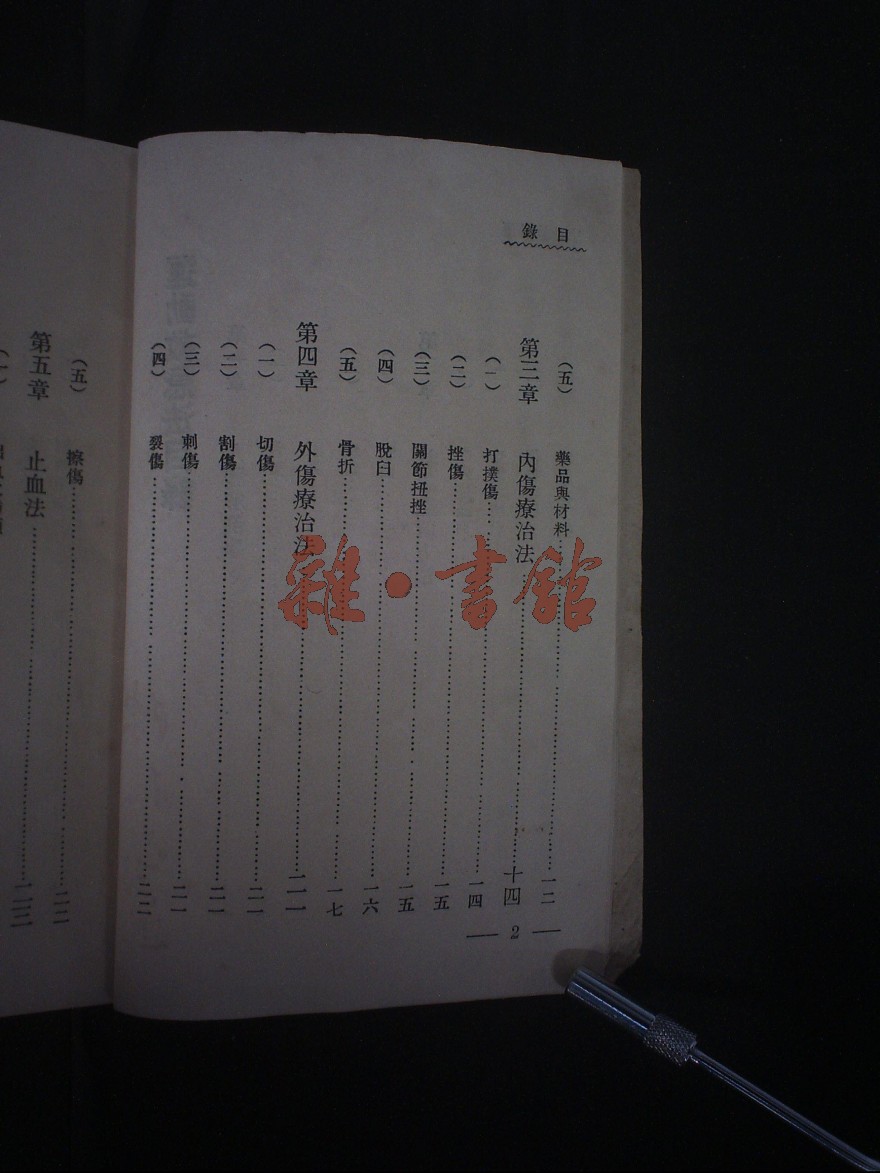 錄目
（五）　藥品與材料……一二
第三章　內傷療治法……十四
（一）　打撲傷……一四
（二）　挫傷……一五
（三）　關節扭挫……一五
（四）　脫臼……一六
（五）　骨折……一七
第四章　外傷療治法……二一
（一）　切傷……二一
（二）　割傷……二一
（三）　刺傷……二一
（四）　裂傷……二二
— 2 —
（五）　擦傷……二二
第五章　止血法……二三
（一）
雜·書館